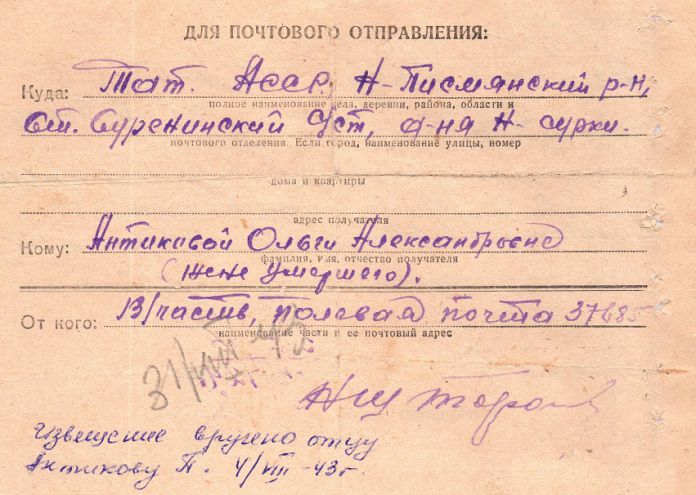 ДЛЯ ПОЧТОВОГО ОТПРАВЛЕНИЯ:
Куда: Тат. АССР, Н-Писмянский р-н,
полное наименование села, деревни, района, области и
Суренинский д-ня Н- сурки.
почтового отделения. Если город, наименование улицы, номер
дома и квартиры
адрес получателя
Кому: Антиковой Ольги Александровне
фамилия, имя, отчество получателя
(жене умершего).
От кого: В/часть, полевая почта 37685
наименование части и ее почтовый адрес
31/VIII 43
Извещение вручено отцу
Антикову П. 4/VIII -43г.